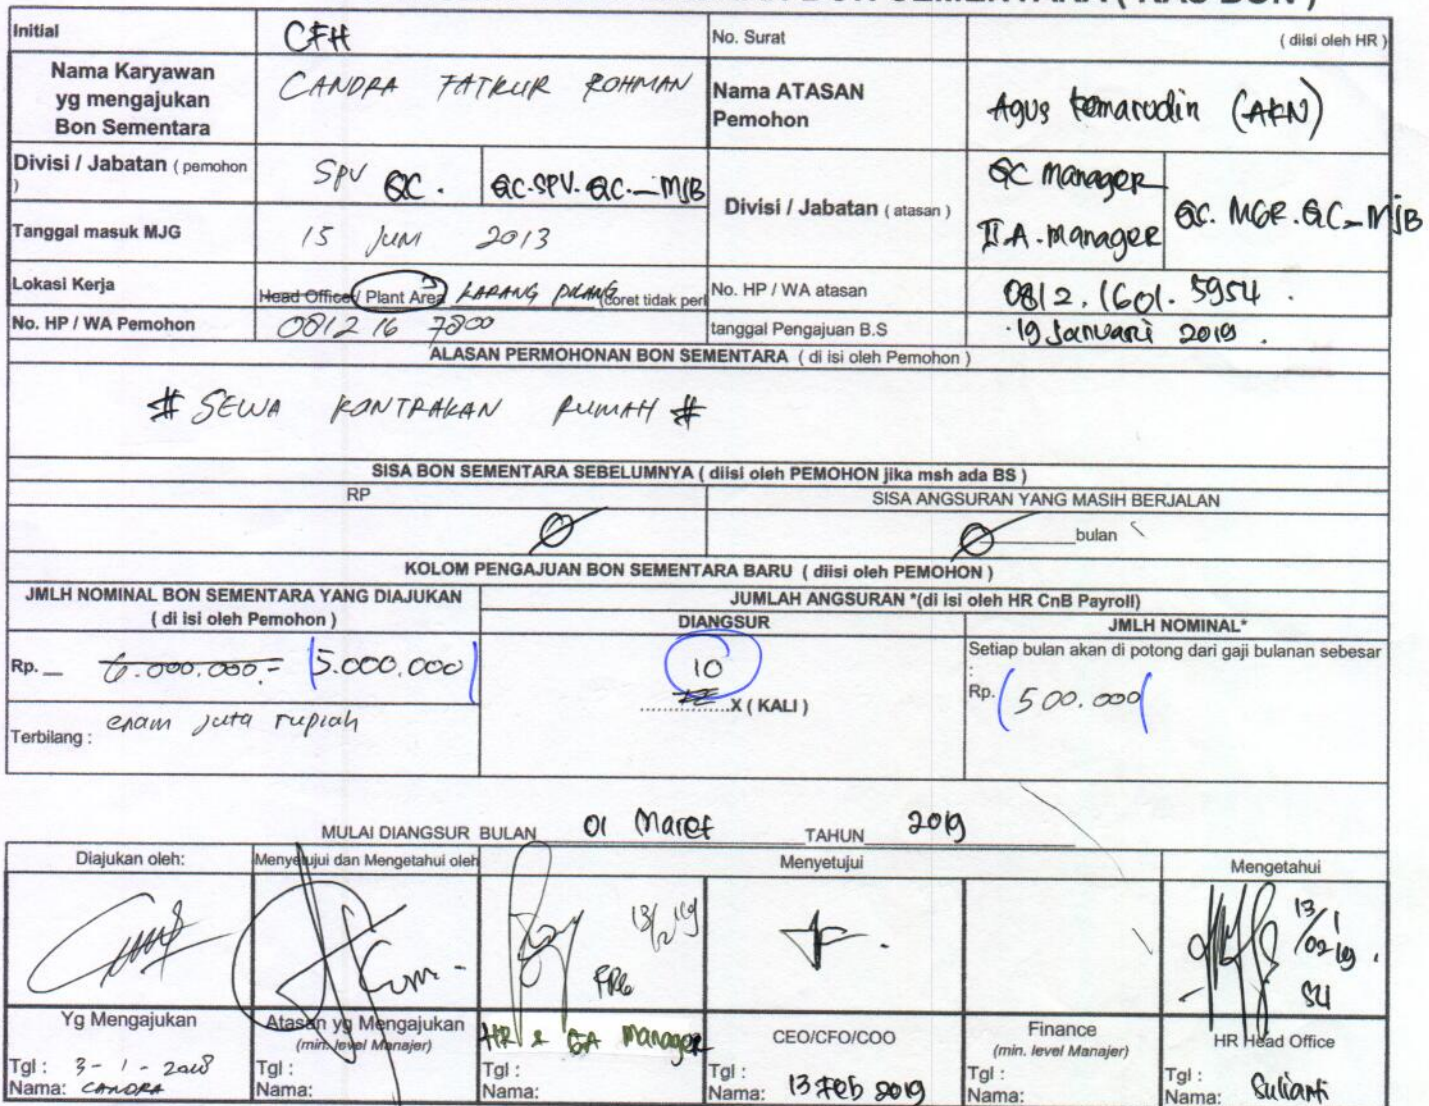 BON SEMENTARA ( KAS BON )
Initial CFH No. Surat ( diisi oleh HR )
Nama Karyawan yg mengajukan Bon Sementara CANDRA FATKUR ROHMAN
Nama ATASAN Pemohon Agus Komarudin (AKN)
Divisi / Jabatan ( pemohon ) SPV QC. QC.SPV.QC.-MJB
Divisi / Jabatan ( atasan ) QC Manager II A.Manager QC.MGR.QC-MJB
Tanggal masuk MJG 15 JUNI 2013
Lokasi Kerja Head Office / Plant Area KARANG PILANG (coret tidak perl
No. HP / WA atasan 0812.1601.5954.
No. HP / WA Pemohon 0812 16 7800
tanggal Pengajuan B.S 19 Januari 2019.
ALASAN PERMOHONAN BON SEMENTARA ( di isi oleh Pemohon )
# SEWA KONTRAKAN RUMAH #
SISA BON SEMENTARA SEBELUMNYA ( diisi oleh PEMOHON jika msh ada BS )
RP SISA ANGSURAN YANG MASIH BERJALAN
bulan
KOLOM PENGAJUAN BON SEMENTARA BARU ( diisi oleh PEMOHON )
JMLH NOMINAL BON SEMENTARA YANG DIAJUKAN
( di isi oleh Pemohon )
JUMLAH ANGSURAN *(di isi oleh HR CnB Payroll)
DIANGSUR JMLH NOMINAL*
Rp. 6.000.000.- 5.000.000
10
X ( KALI )
Setiap bulan akan di potong dari gaji bulanan sebesar
:
Rp. 500.000
Terbilang : enam juta rupiah
MULAI DIANGSUR BULAN 01 Maret TAHUN 2019
Diajukan oleh: Menyetujui dan Mengetahui oleh Menyetujui Mengetahui
13/2/19
13/02/19.
Yg Mengajukan
Tgl : 3-1-2018
Nama: CANDRA
Atasan yg Mengajukan
(min. level Manajer)
Tgl :
Nama:
HR & GA Manager
Tgl :
Nama:
CEO/CFO/COO
Tgl :
Nama: 13 Feb 2019
Finance
(min. level Manajer)
Tgl :
Nama:
HR Head Office
Tgl :
Nama: Sulianti